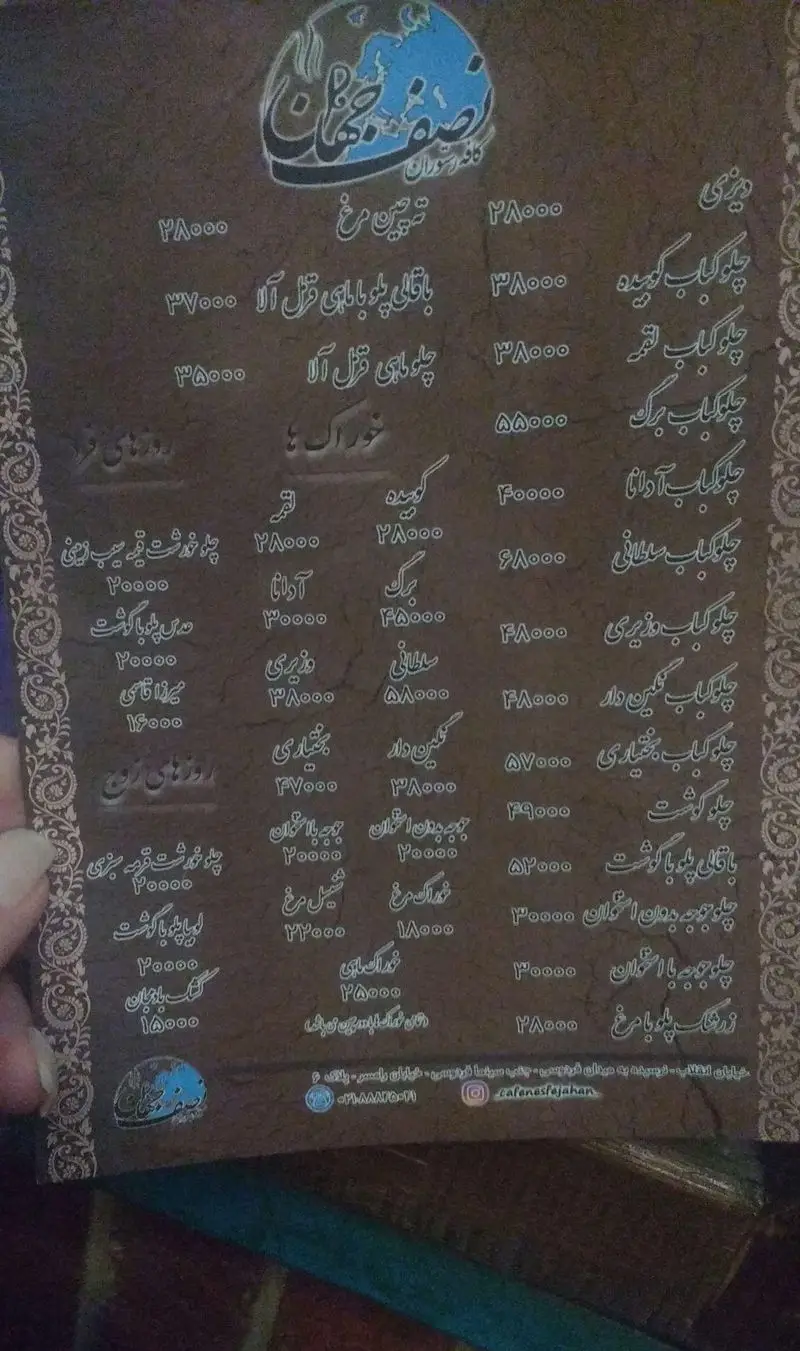 نصف جهان
کافه رستوران
دیزی ۲۸۰۰۰
چلو کباب کوبیده ۳۸۰۰۰
چلو کباب لقمه ۳۸۰۰۰
چلو کباب برگ ۵۵۰۰۰
چلو کباب آدانا ۴۰۰۰۰
چلو کباب سلطانی ۶۸۰۰۰
چلو کباب وزیری ۴۸۰۰۰
چلو کباب نگین دار ۴۸۰۰۰
چلو کباب بختیاری ۵۷۰۰۰
چلو گوشت ۴۹۰۰۰
باقالی پلو با گوشت ۵۲۰۰۰
چلو جوجه بدون استخوان ۳۰۰۰۰
چلو جوجه با استخوان ۳۰۰۰۰
زرشک پلو با مرغ ۲۸۰۰۰
ته چین مرغ ۲۸۰۰۰
باقالی پلو با ماهی قزل آلا ۳۷۰۰۰
چلو ماهی قزل آلا ۳۵۰۰۰
خوراک ها
کوبیده لقمه
۲۸۰۰۰ ۲۸۰۰۰
برگ آدانا
۴۵۰۰۰ ۳۰۰۰۰
سلطانی وزیری
۵۸۰۰۰ ۳۸۰۰۰
نگین دار بختیاری
۳۸۰۰۰ ۴۷۰۰۰
جوجه بدون استخوان جوجه با استخوان
۲۰۰۰۰ ۲۰۰۰۰
خوراک مرغ شنیسل مرغ
۱۸۰۰۰ ۲۲۰۰۰
خوراک ماهی
۲۵۰۰۰
روزهای فرد
چلو خورشت قیمه سیب زمینی
۲۰۰۰۰
عدس پلو با گوشت
۲۰۰۰۰
میرزا قاسمی
۱۶۰۰۰
روزهای زوج
چلو خورشت قرمه سبزی
۲۰۰۰۰
لوبیا پلو با گوشت
۲۰۰۰۰
کشک بادمجان
۱۵۰۰۰
خیابان انقلاب - نرسیده به میدان فردوسی - جنب سینما فردوسی - خیابان رامسر - پلاک ۶
cafenesfejahan
۰۲۱-۸۸۸۲۵۰۲۱
نصف جهان